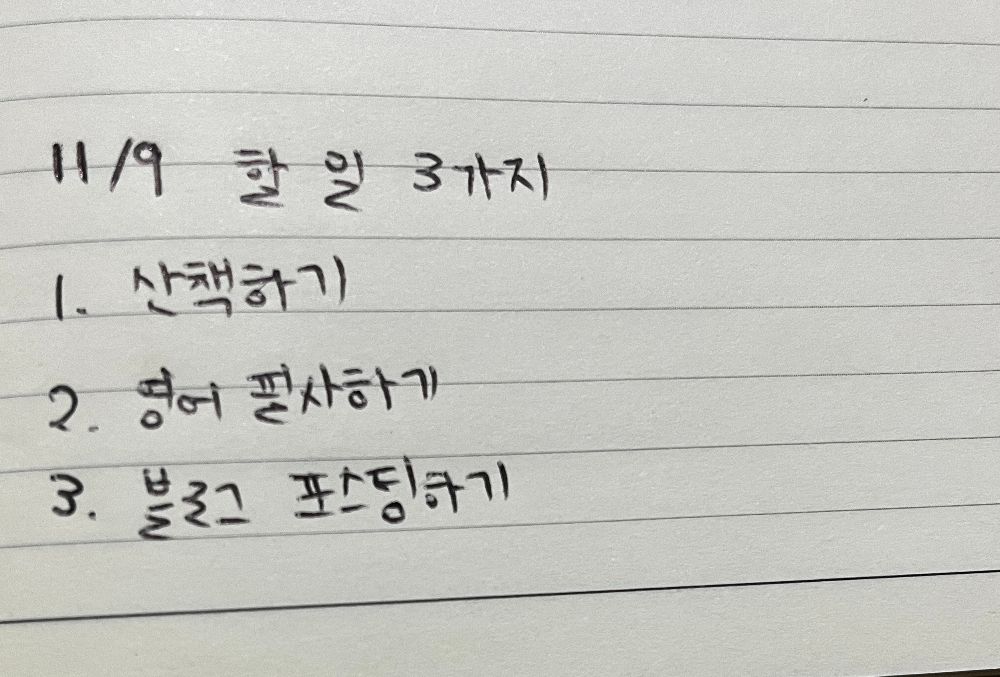 11/9 할 일 3가지
1. 산책하기
2. 영어 필사하기
3. 블로그 포스팅하기